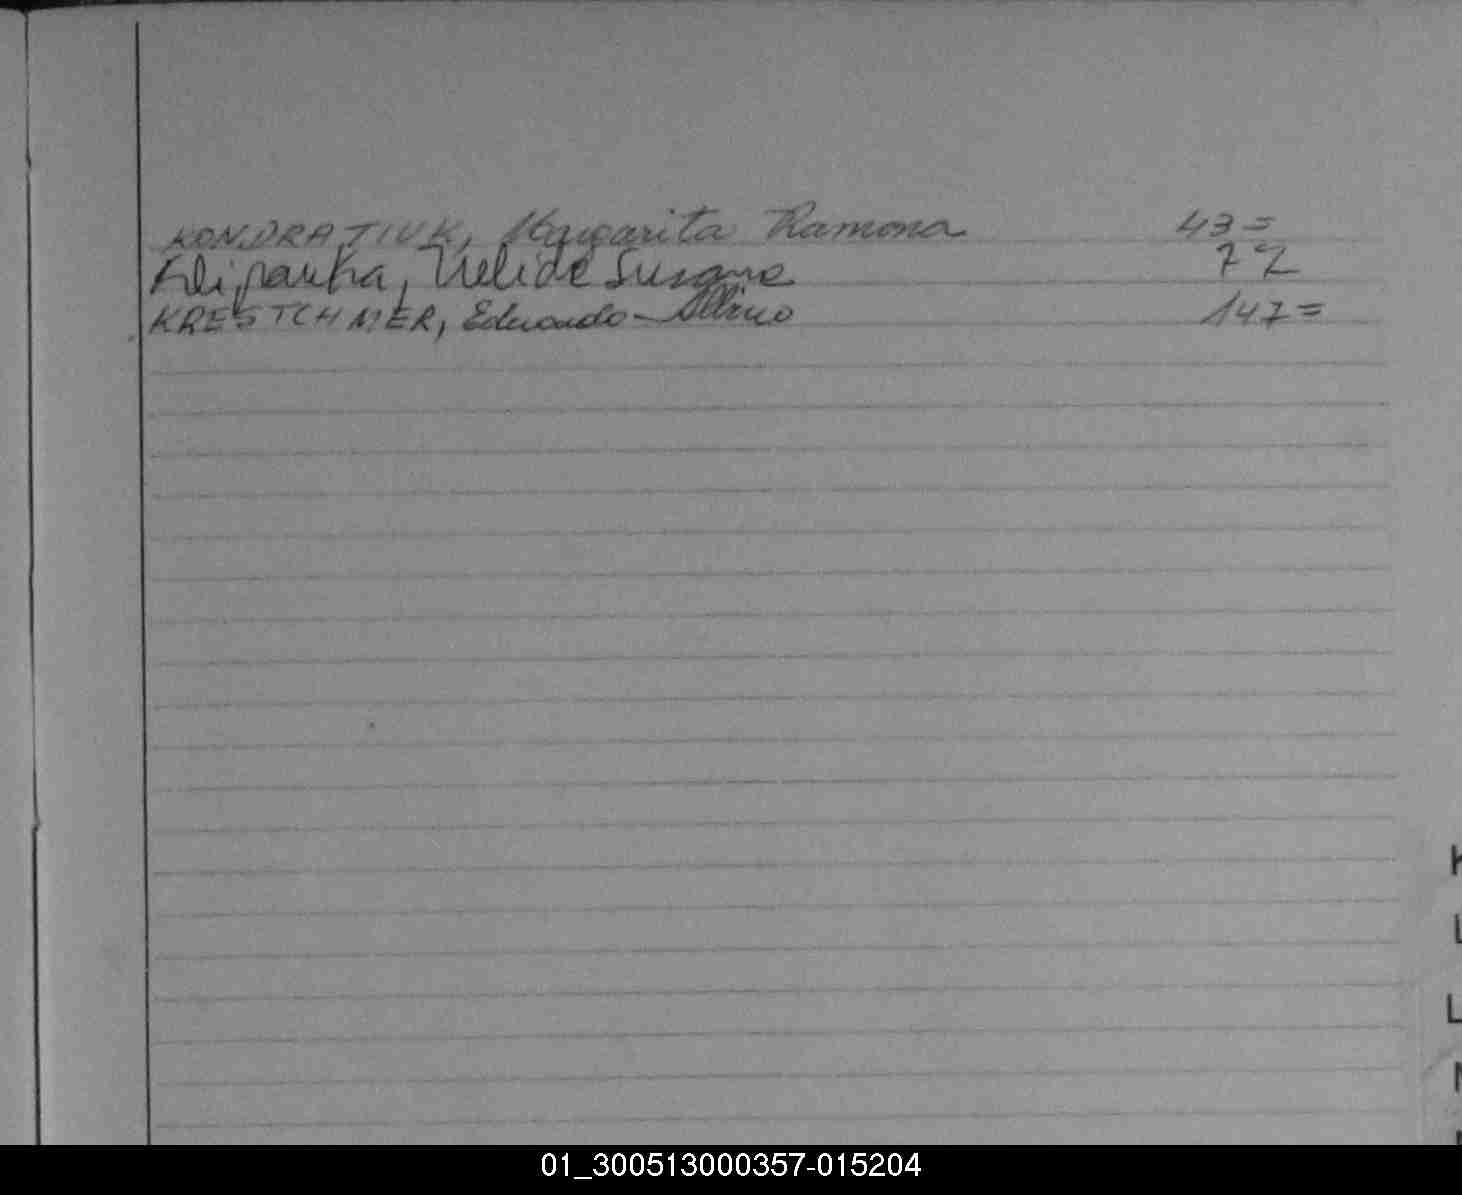 KONDRATIUK, Margarita Ramona 43=
Nélida Susana 72
KRESTCHMER, Eduardo - Albino 147=
K
L
L
01_300513000357-015204